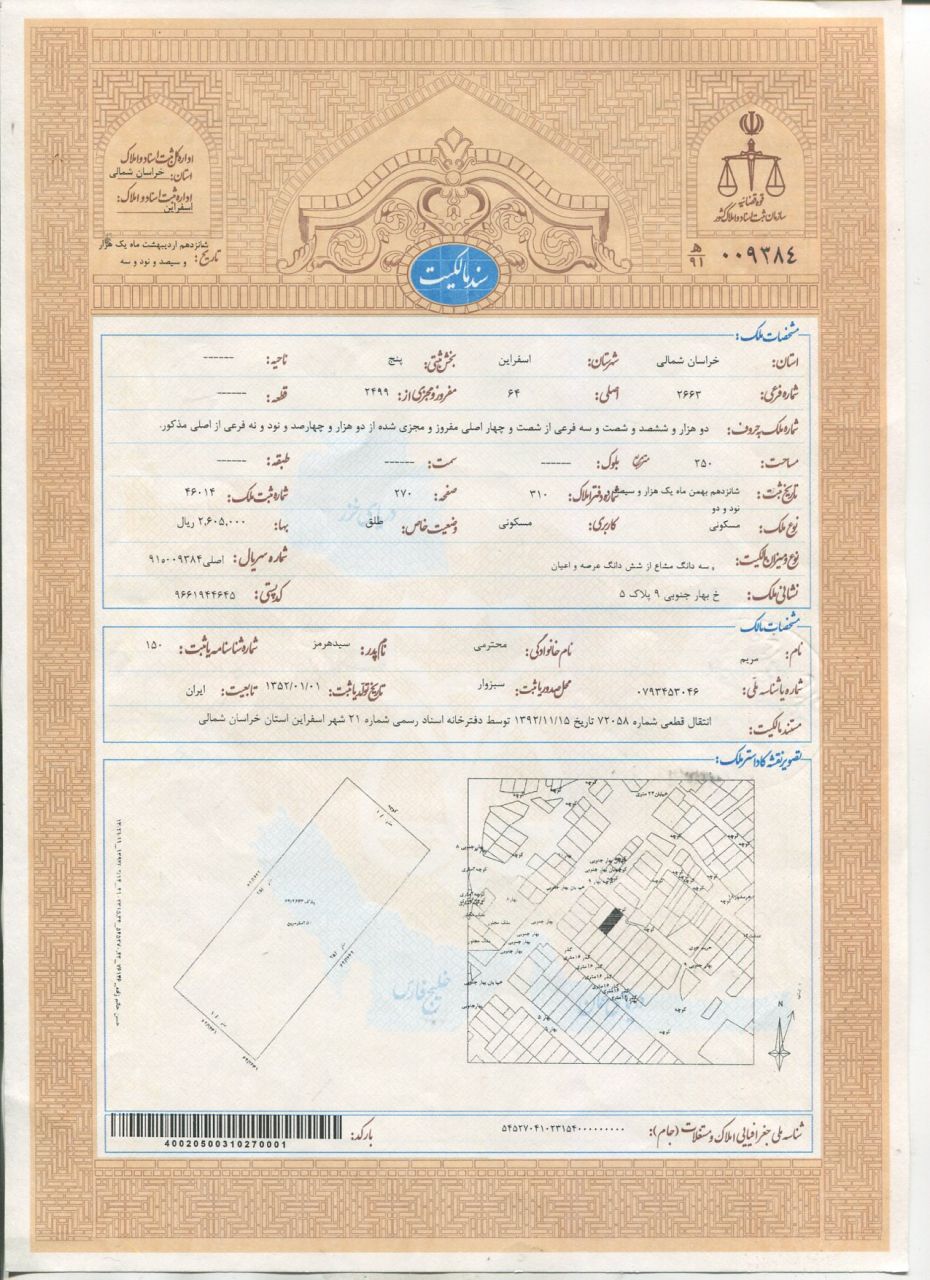 قوه قضائیه
سازمان ثبت اسناد و املاک کشور
۰۰۹۳۸۴ ه‍/۹۱
اداره کل ثبت اسناد و املاک
استان: خراسان شمالی
اداره ثبت اسناد و املاک:
اسفراین
تاریخ: شانزدهم اردیبهشت ماه یک هزار
و سیصد و نود و سه
سند مالکیت
مشخصات ملک:
استان: خراسان شمالی شهرستان: اسفراین بخش ثبتی: پنج ناحیه: ------
شماره فرعی: ۲۶۶۳ اصلی: ۶۴ مفروز و مجزی از: ۲۴۹۹ قطعه: ------
شماره ملک به حروف: دو هزار و ششصد و شصت و سه فرعی از شصت و چهار اصلی مفروز و مجزی شده از دو هزار و چهارصد و نود و نه فرعی از اصلی مذکور.
مساحت: ۲۵۰ بلوک: ------ سمت: ------ طبقه: ------
تاریخ ثبت: شانزدهم بهمن ماه یک هزار و سیصد شماره دفتر املاک: ۳۱۰ صفحه: ۲۷۰ شماره ثبت ملک: ۴۶۰۱۴
نود و دو
نوع ملک: مسکونی کاربری: مسکونی وضعیت خاص: طلق بها: ۲,۶۰۵,۰۰۰ ریال
نوع و میزان مالکیت: سه دانگ مشاع از شش دانگ عرصه و اعیان شماره سریال: اصلی ۹۱۵۰۰۹۳۸۴
نشانی ملک: خ بهار جنوبی ۹ پلاک ۵ کد پستی: ۹۶۶۱۹۴۴۶۴۵
مشخصات مالک:
نام: مریم نام خانوادگی: محترمی نام پدر: سیدهرمز شماره شناسنامه یا ثبت: ۱۵۰
شماره یا شناسه ملی: ۰۷۹۳۴۵۳۰۴۶ محل صدور یا ثبت: سبزوار تاریخ تولد یا ثبت: ۱۳۵۲/۰۱/۰۱ تابعیت: ایران
مستند مالکیت: انتقال قطعی شماره ۷۲۰۵۸ تاریخ ۱۳۹۲/۱۱/۱۵ توسط دفترخانه اسناد رسمی شماره ۲۱ شهر اسفراین استان خراسان شمالی
تصویر نقشه کاداستر ملک:
خلیج فارس
N
شناسه ملی جغرافیایی املاک و مستغلات (جام): ۵۴۵۲۷۰۴۱۰۲۳۱۵۴۰۰۰۰۰۰۰۰۰۰
بارکد:
40020500310270001